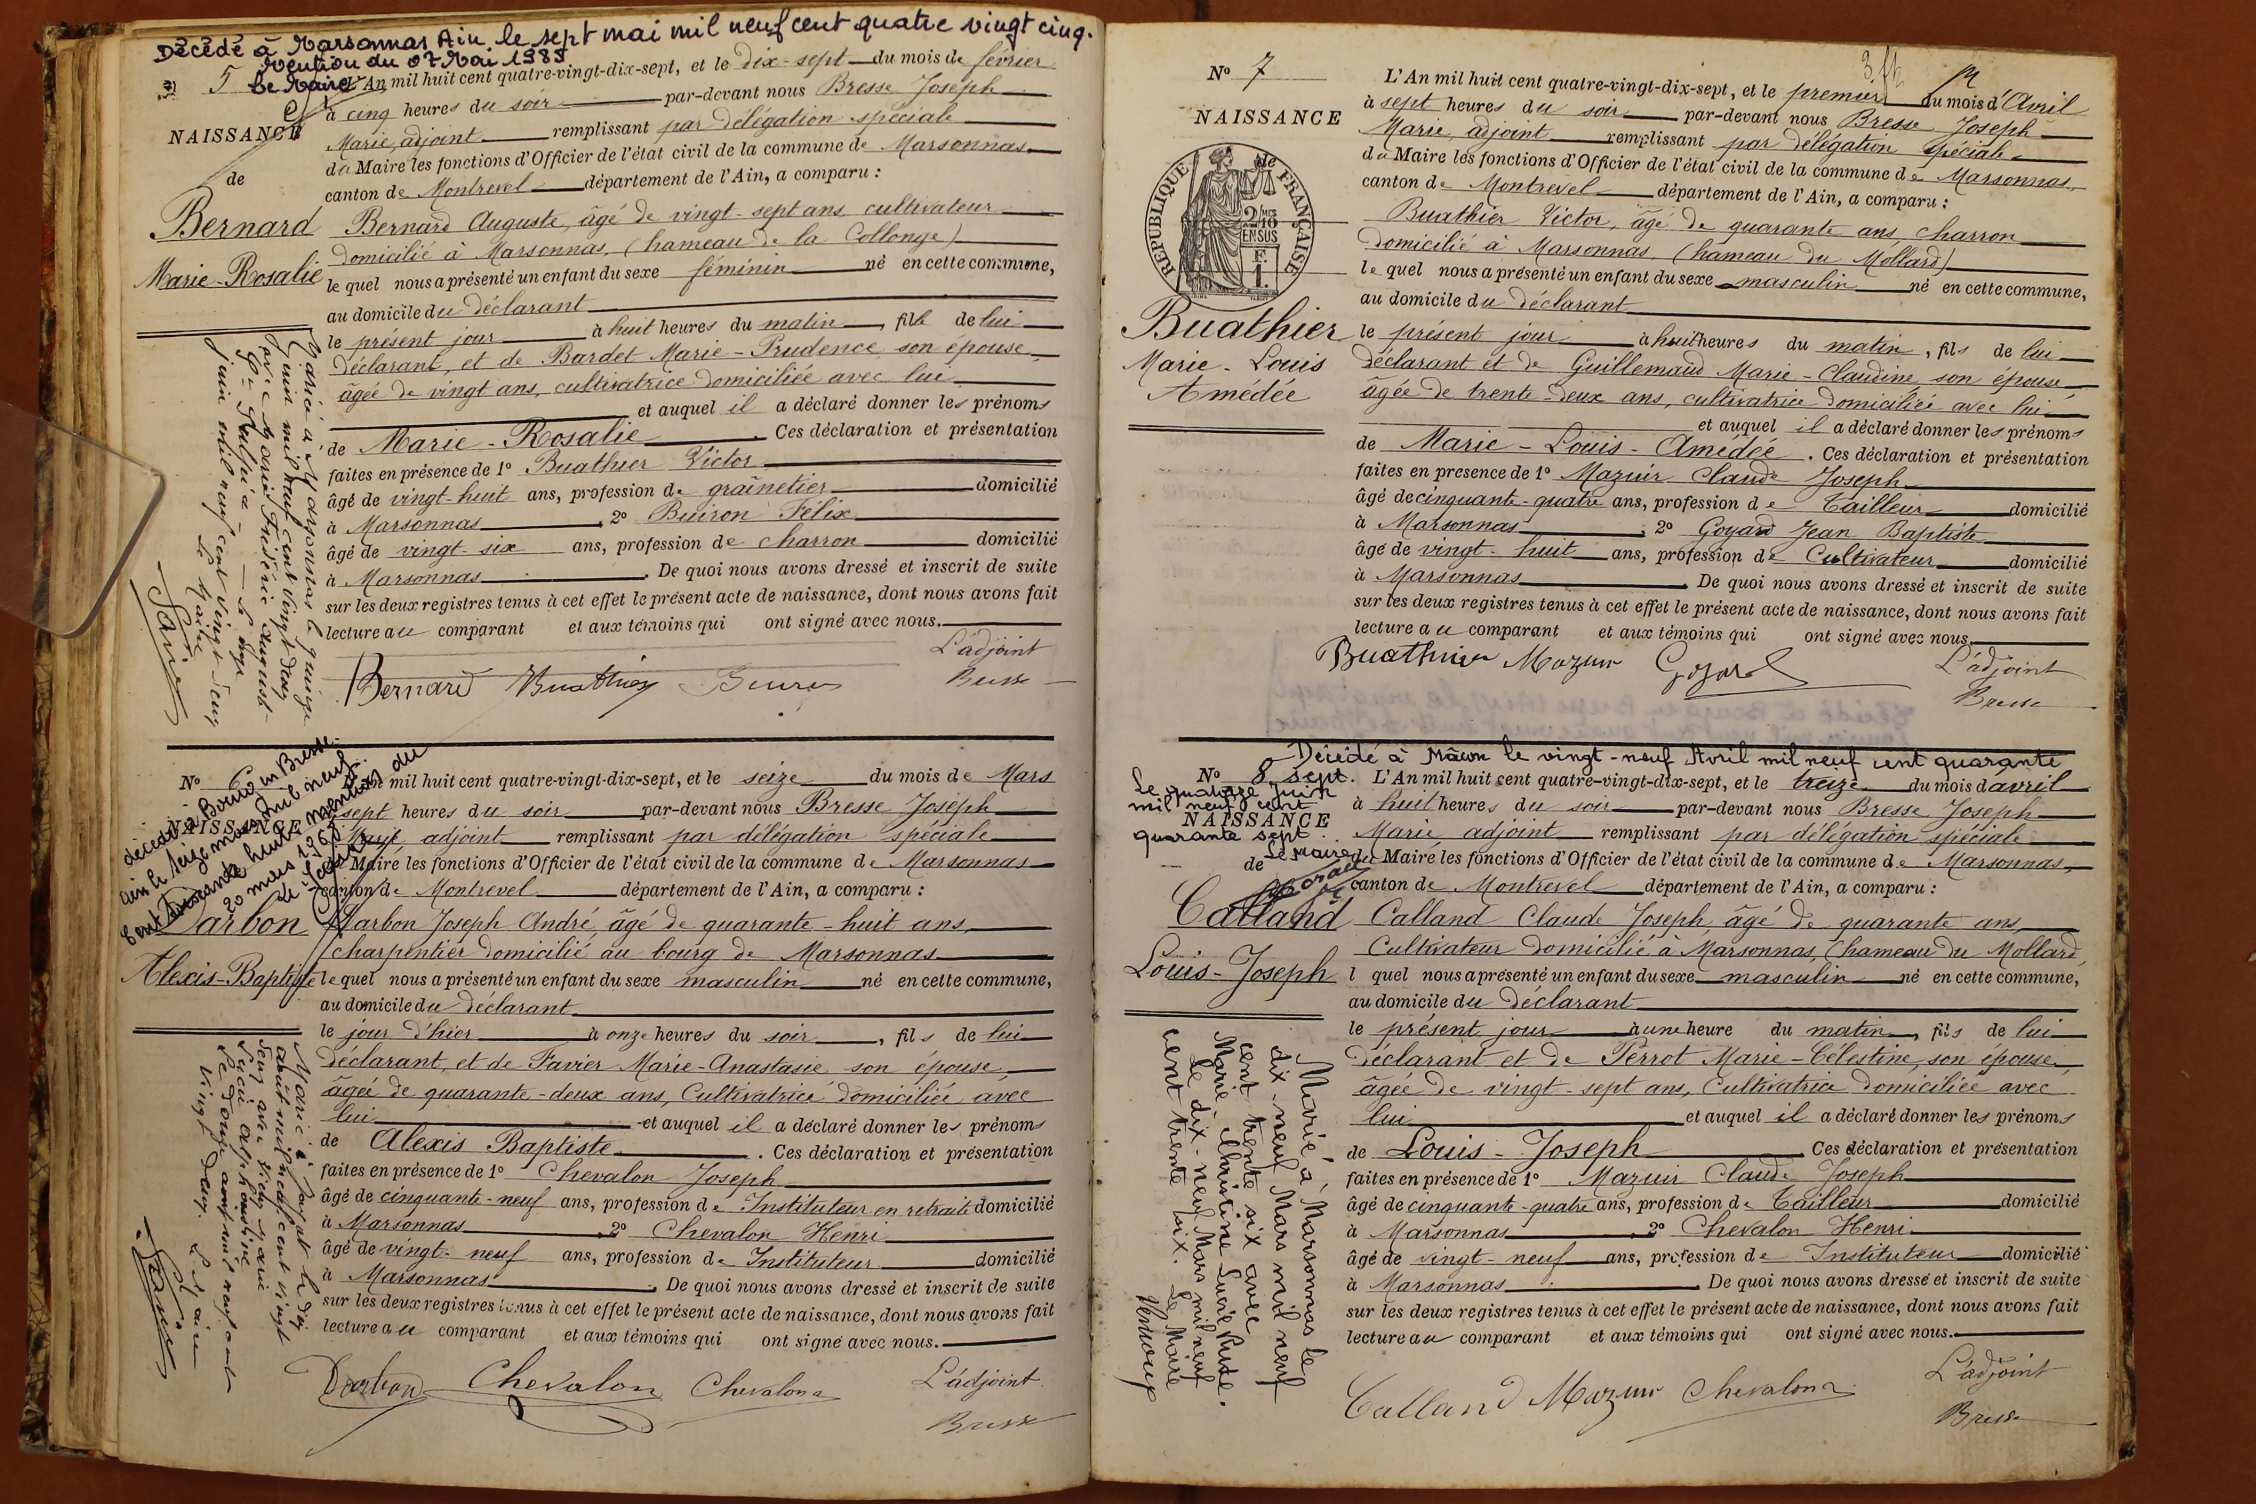 Décédé à Marsonnas Ain le sept mai mil neuf cent quatre vingt cinq.
Mention du 07 Mai 1985
Le Maire
5
L'An mil huit cent quatre-vingt-dix-sept, et le dix-sept du mois de février
à cinq heures du soir par-devant nous Bresse Joseph
NAISSANCE
Marie, adjoint remplissant par délégation spéciale
du Maire les fonctions d'Officier de l'état civil de la commune de Marsonnas
de
canton de Montrevel département de l'Ain, a comparu :
Bernard
Bernard Auguste, âgé de vingt-sept ans cultivateur
domicilié à Marsonnas, (hameau de la Collonge)
Marie-Rosalie
lequel nous a présenté un enfant du sexe féminin né en cette commune,
au domicile du déclarant
le présent jour à huit heures du matin, fille de lui
déclarant, et de Bardet Marie-Prudence, son épouse,
âgée de vingt ans, cultivatrice domiciliée avec lui
et auquel il a déclaré donner les prénoms
de Marie-Rosalie. Ces déclaration et présentation
faites en présence de 1º Buathier Victor
âgé de vingt-huit ans, profession de grainetier domicilié
à Marsonnas, 2º Buiron Félix
âgé de vingt-six ans, profession de charron domicilié
à Marsonnas. De quoi nous avons dressé et inscrit de suite
sur les deux registres tenus à cet effet le présent acte de naissance, dont nous avons fait
lecture au comparant et aux témoins qui ont signé avec nous.
L'adjoint
Bernard Buathier
Bresse
Marié à Marsonnas le quinze
Juin mil neuf cent vingt deux
avec Marie Frédéric August-
Juin mil neuf cent vingt deux
Le Maire
décédé à Bourg en Bresse
Ain le seize mars mil neuf
cent soixante huit mention du
20 mars 1968
Le Maire
Nº 6
L'An mil huit cent quatre-vingt-dix-sept, et le seize du mois de Mars
à sept heures du soir par-devant nous Bresse Joseph
NAISSANCE
Marie, adjoint remplissant par délégation spéciale
du Maire les fonctions d'Officier de l'état civil de la commune de Marsonnas
canton de Montrevel département de l'Ain, a comparu :
Darbon
Darbon Joseph André, âgé de quarante-huit ans,
charpentier domicilié au bourg de Marsonnas
Alexis-Baptiste
lequel nous a présenté un enfant du sexe masculin né en cette commune,
au domicile du déclarant
le jour d'hier à onze heures du soir, fils de lui
déclarant, et de Favier Marie-Anastasie son épouse,
âgée de quarante-deux ans, Cultivatrice domiciliée avec
lui et auquel il a déclaré donner les prénoms
de Alexis Baptiste. Ces déclaration et présentation
faites en présence de 1º Chevalon Joseph
âgé de cinquante-neuf ans, profession de Instituteur en retraite domicilié
à Marsonnas, 2º Chevalon Henri
âgé de vingt-neuf ans, profession de Instituteur domicilié
à Marsonnas. De quoi nous avons dressé et inscrit de suite
sur les deux registres tenus à cet effet le présent acte de naissance, dont nous avons fait
lecture au comparant et aux témoins qui ont signé avec nous.
L'adjoint
Darbon Chevalon Chevalon
Bresse
Marié à le dix
août mil neuf cent vingt
deux avec Marie
Le douze août mil neuf cent
vingt deux. Le Maire
Nº 7
L'An mil huit cent quatre-vingt-dix-sept, et le premier du mois d'Avril
à sept heures du soir par-devant nous Bresse Joseph
NAISSANCE
Marie, adjoint remplissant par délégation spéciale
du Maire les fonctions d'Officier de l'état civil de la commune de Marsonnas,
de
canton de Montrevel département de l'Ain, a comparu :
REPUBLIQUE FRANÇAISE
EN SUS
Buathier Victor, âgé de quarante ans, charron
domicilié à Marsonnas, (hameau du Mollard)
lequel nous a présenté un enfant du sexe masculin né en cette commune,
au domicile du déclarant
Buathier
Marie-Louis
Amédée
le présent jour à huit heures du matin, fils de lui
déclarant et de Guillemaud Marie-Claudine, son épouse
âgée de trente-deux ans, cultivatrice domiciliée avec lui
et auquel il a déclaré donner les prénoms
de Marie-Louis-Amédée. Ces déclaration et présentation
faites en présence de 1º Mazuir Claude Joseph
âgé de cinquante-quatre ans, profession de Tailleur domicilié
à Marsonnas, 2º Goyard Jean Baptiste
âgé de vingt-huit ans, profession de Cultivateur domicilié
à Marsonnas. De quoi nous avons dressé et inscrit de suite
sur les deux registres tenus à cet effet le présent acte de naissance, dont nous avons fait
lecture au comparant et aux témoins qui ont signé avec nous.
Buathier Mazuir Goyard
L'adjoint
Bresse
Décédé à Mâcon le vingt-neuf Avril mil neuf cent quarante
sept.
Le quatorze Juin
mil neuf cent
quarante sept
Le Maire
Nº 8
L'An mil huit cent quatre-vingt-dix-sept, et le treize du mois d'avril
à huit heures du soir par-devant nous Bresse Joseph
NAISSANCE
Marie adjoint remplissant par délégation spéciale
de
du Maire les fonctions d'Officier de l'état civil de la commune de Marsonnas,
canton de Montrevel département de l'Ain, a comparu :
Calland
Calland Claude Joseph, âgé de quarante ans,
Cultivateur domicilié à Marsonnas, (hameau du Mollard,
Louis-Joseph
lequel nous a présenté un enfant du sexe masculin né en cette commune,
au domicile du déclarant
le présent jour à une heure du matin, fils de lui
déclarant et de Perrot Marie-Célestine, son épouse,
âgée de vingt-sept ans, Cultivatrice domiciliée avec
lui et auquel il a déclaré donner les prénoms
de Louis-Joseph Ces déclaration et présentation
faites en présence de 1º Mazuir Claude Joseph
âgé de cinquante-quatre ans, profession de Tailleur domicilié
à Marsonnas, 2º Chevalon Henri
âgé de vingt-neuf ans, profession de Instituteur domicilié
à Marsonnas. De quoi nous avons dressé et inscrit de suite
sur les deux registres tenus à cet effet le présent acte de naissance, dont nous avons fait
lecture au comparant et aux témoins qui ont signé avec nous.
L'adjoint
Calland Mazuir Chevalon
Bresse
Marié à Marsonnas le
dix-neuf Mars mil neuf
cent trente six avec
Marie-Christine-Lucie Rude.
Le dix-neuf Mars mil neuf
cent trente six. Le Maire